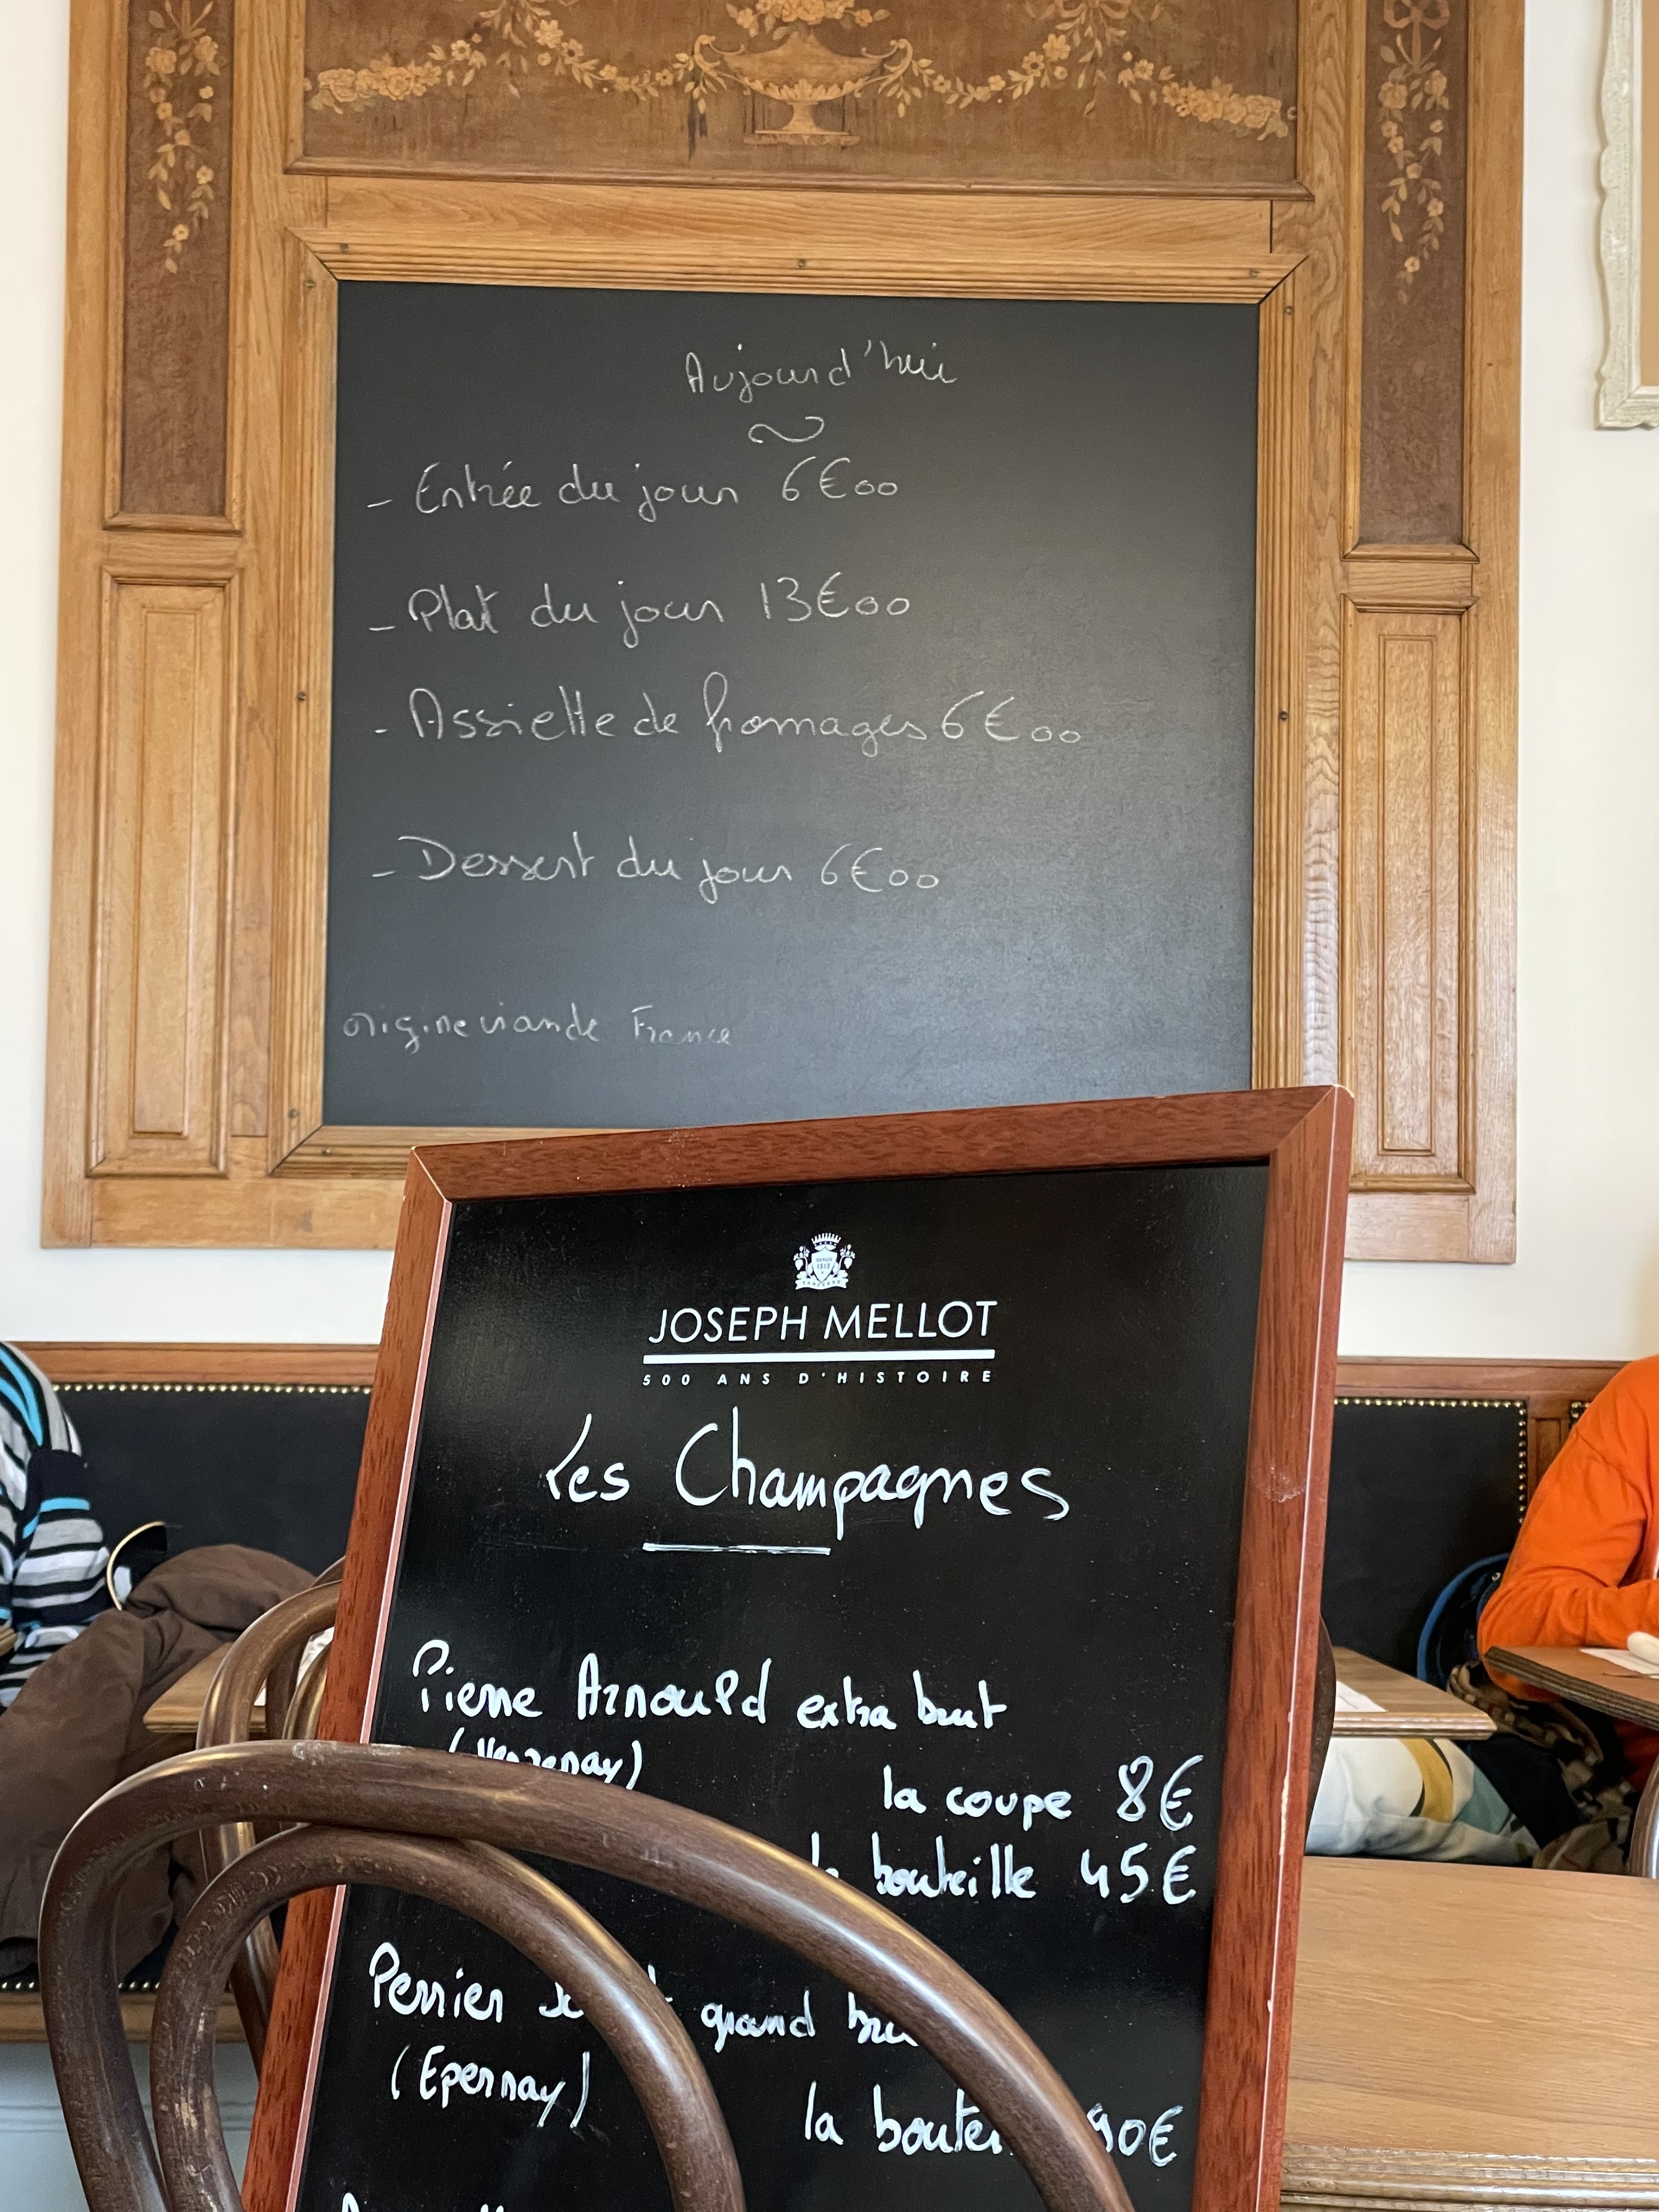 Aujourd'hui
- Entrée du jour 6€00
- Plat du jour 13€00
- Assiette de fromages 6€00
- Dessert du jour 6€00
origine viande France
JOSEPH MELLOT
500 ANS D'HISTOIRE
Les Champagnes
Pierre Arnould extra brut
la coupe 8€
bouteille 45€
Perrier grand
(Epernay)
la